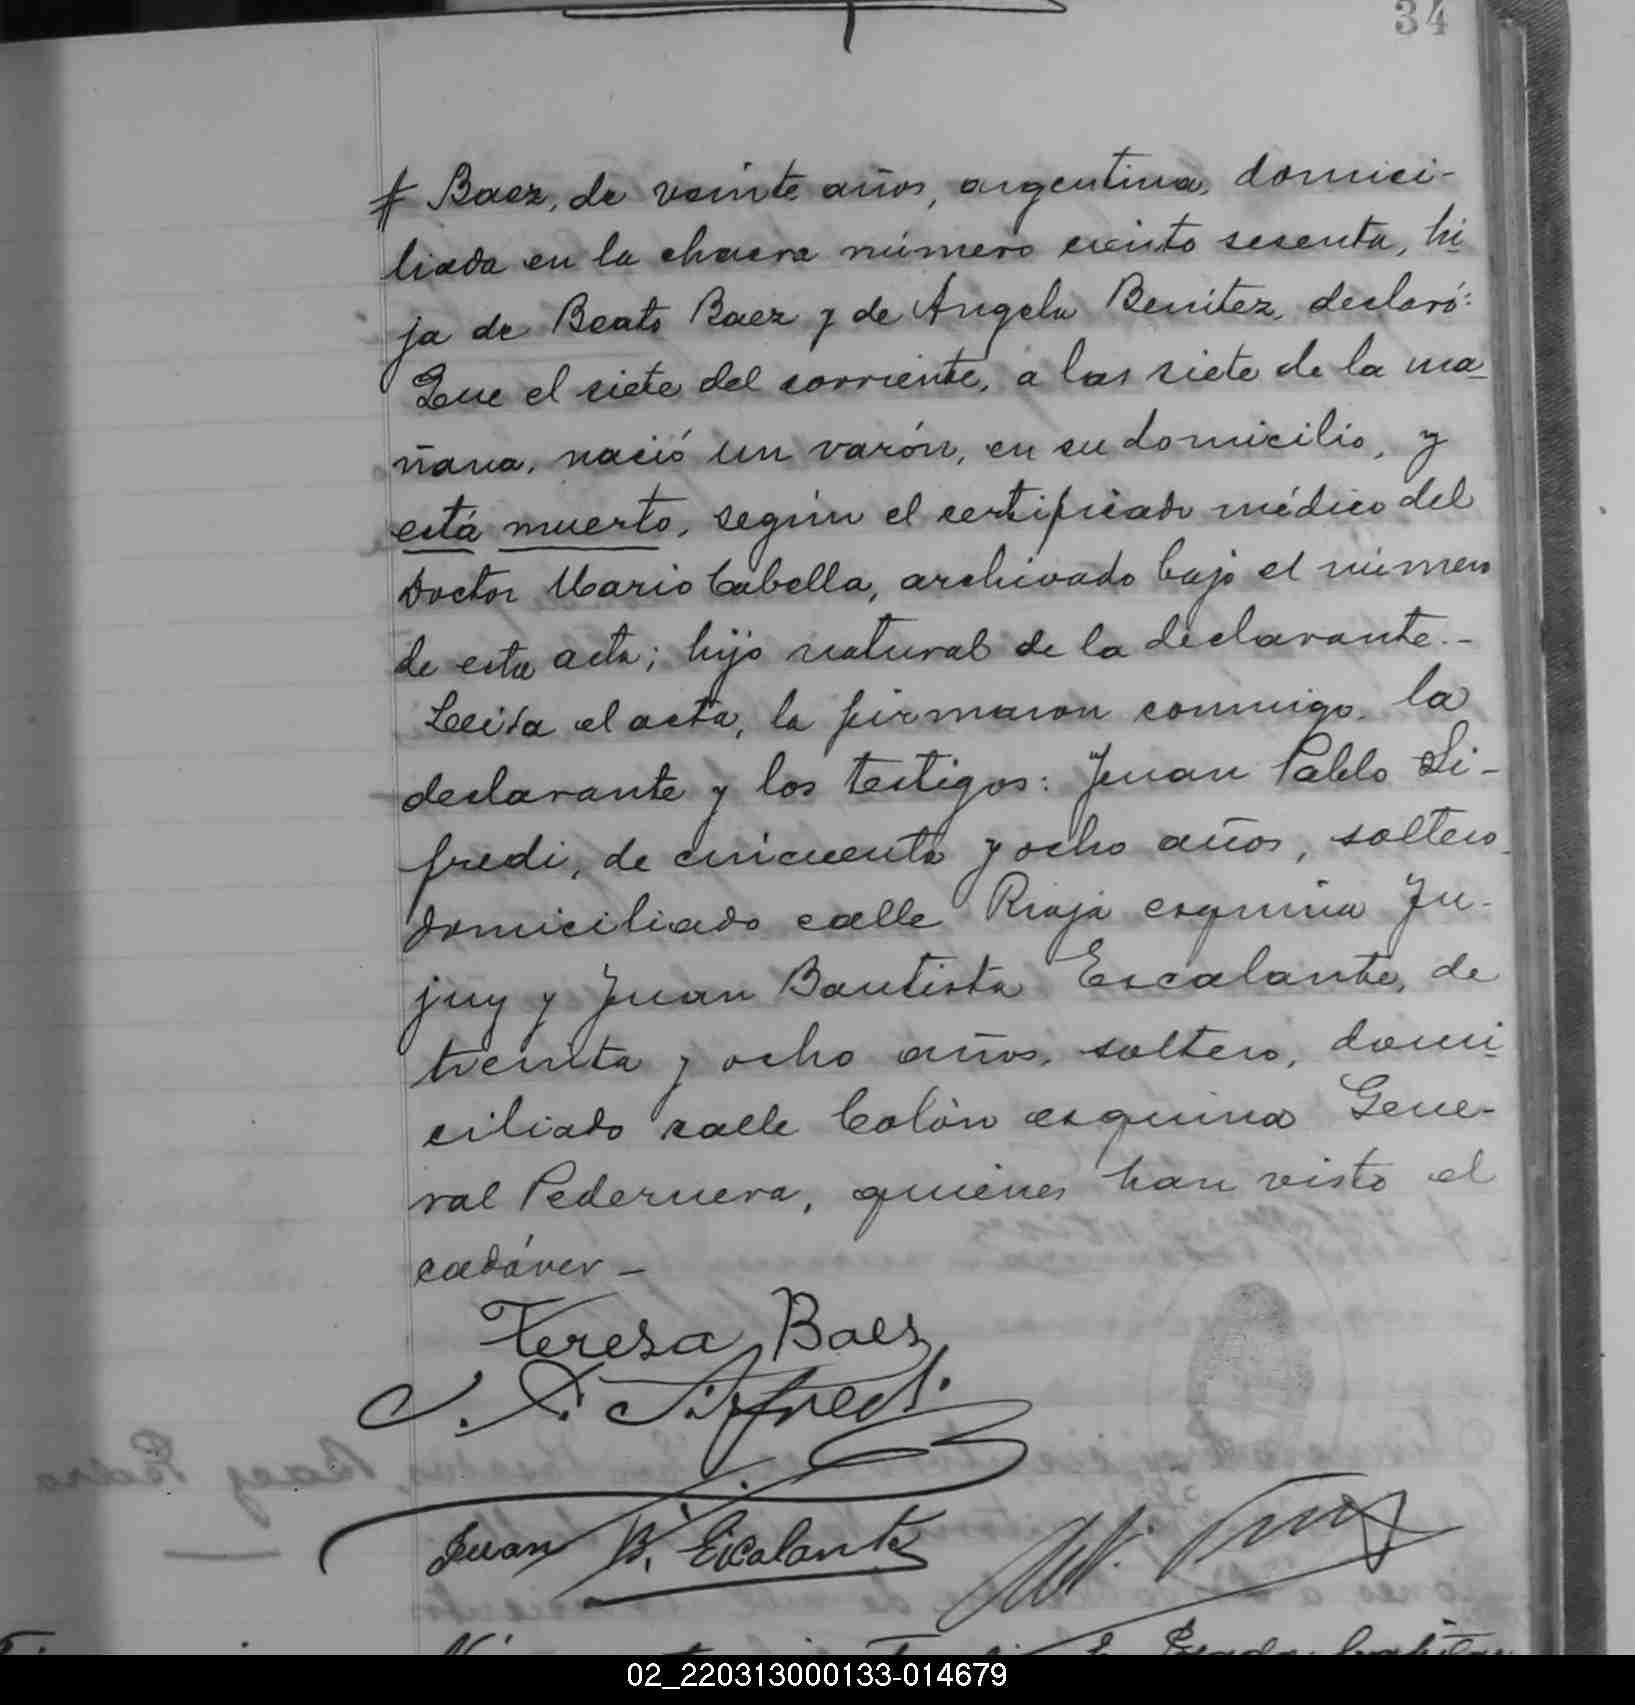 34
# Baez, de veinte años, argentina, domici-
liada en la chacra número ciento sesenta, hi-
ja de Beato Baez y de Angela Benítez, declaró:
Que el siete del corriente, a las siete de la ma-
ñana, nació un varón, en su domicilio, y
está muerto, según el certificado médico del
Doctor Mario Cabella, archivado bajo el número
de esta acta; hijo natural de la declarante.-
Leida el acta, la firmaron conmigo, la
declarante y los testigos: Juan Pablo Si-
fredi, de cincuenta y ocho años, soltero,
domiciliado calle Rioja esquina Ju-
juy y Juan Bautista Escalante, de
treinta y ocho años, soltero, domi-
ciliado calle Colón esquina Gene-
ral Pedernera, quiénes han visto el
cadáver -
Teresa Baes
J. P. Sifredi
Juan B. Escalante
02_220313000133-014679